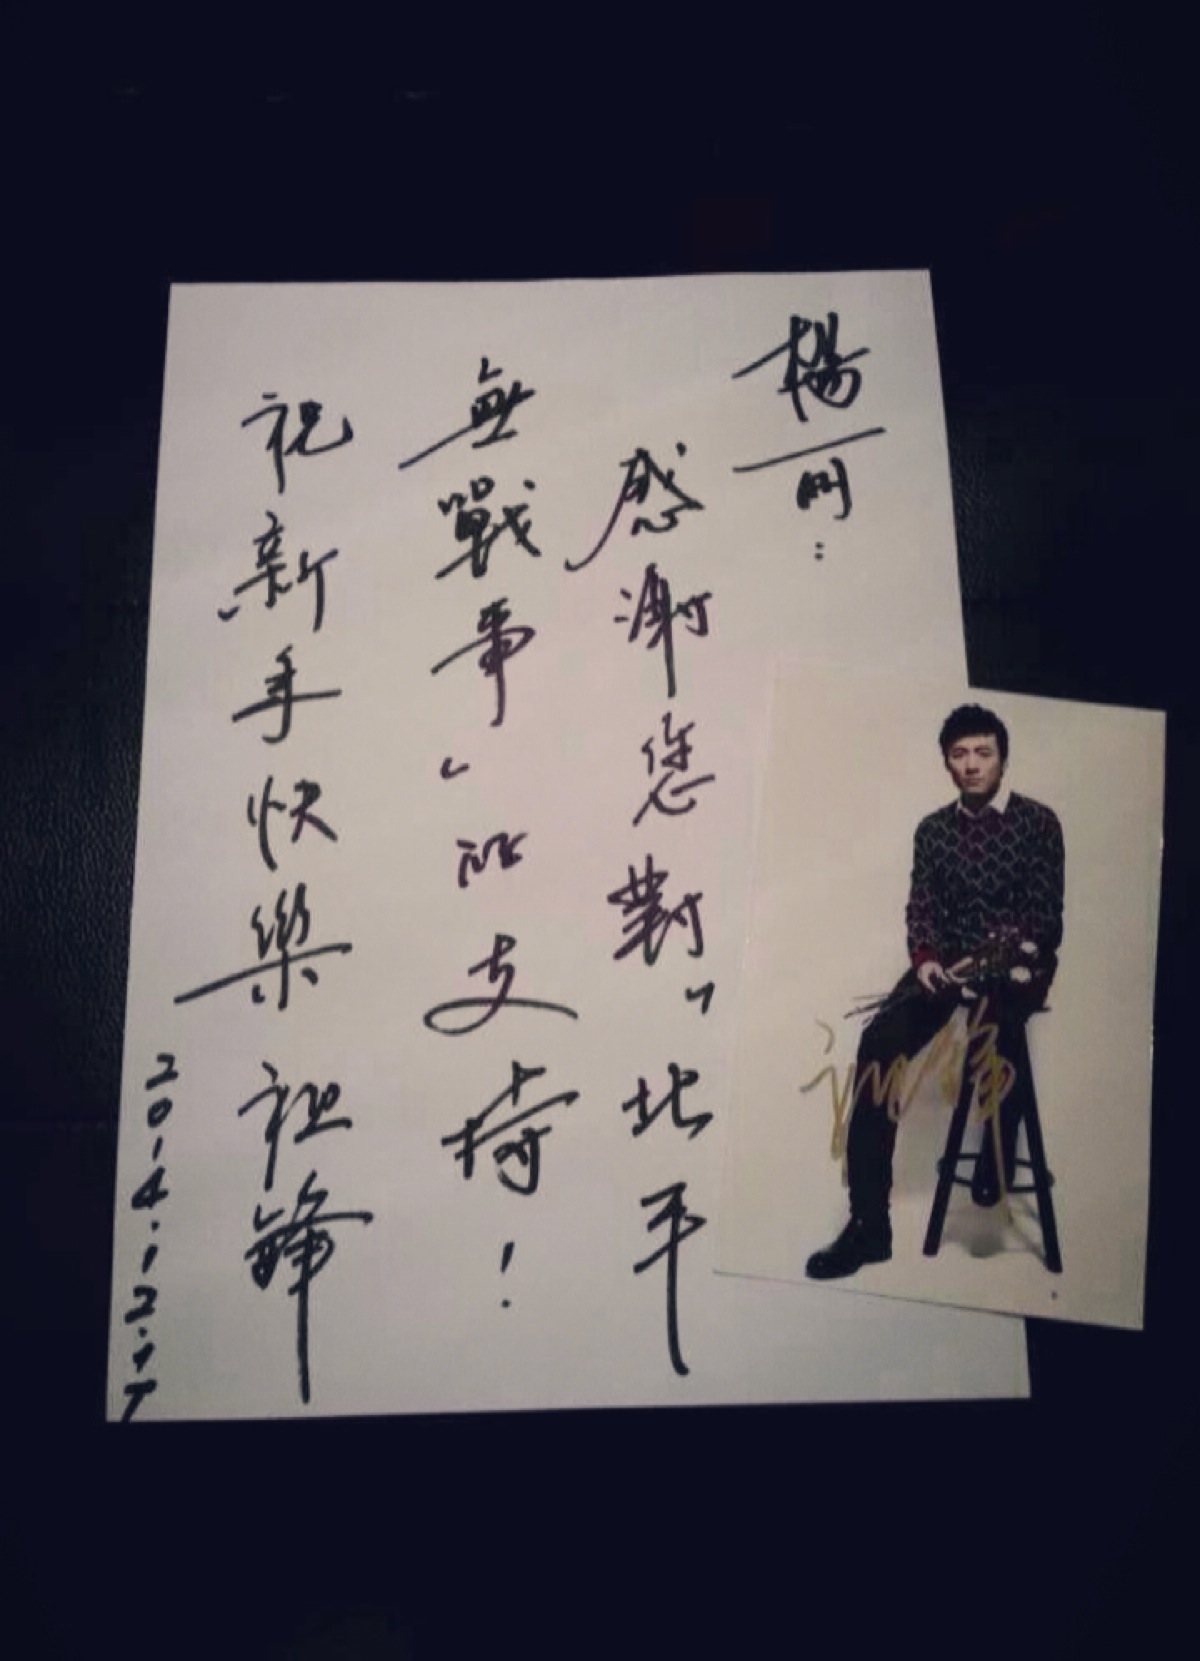 楊一:
感謝您對"北平
無戰事"的支持!
祝新年快樂 祖鋒
2014.12.17
祖鋒